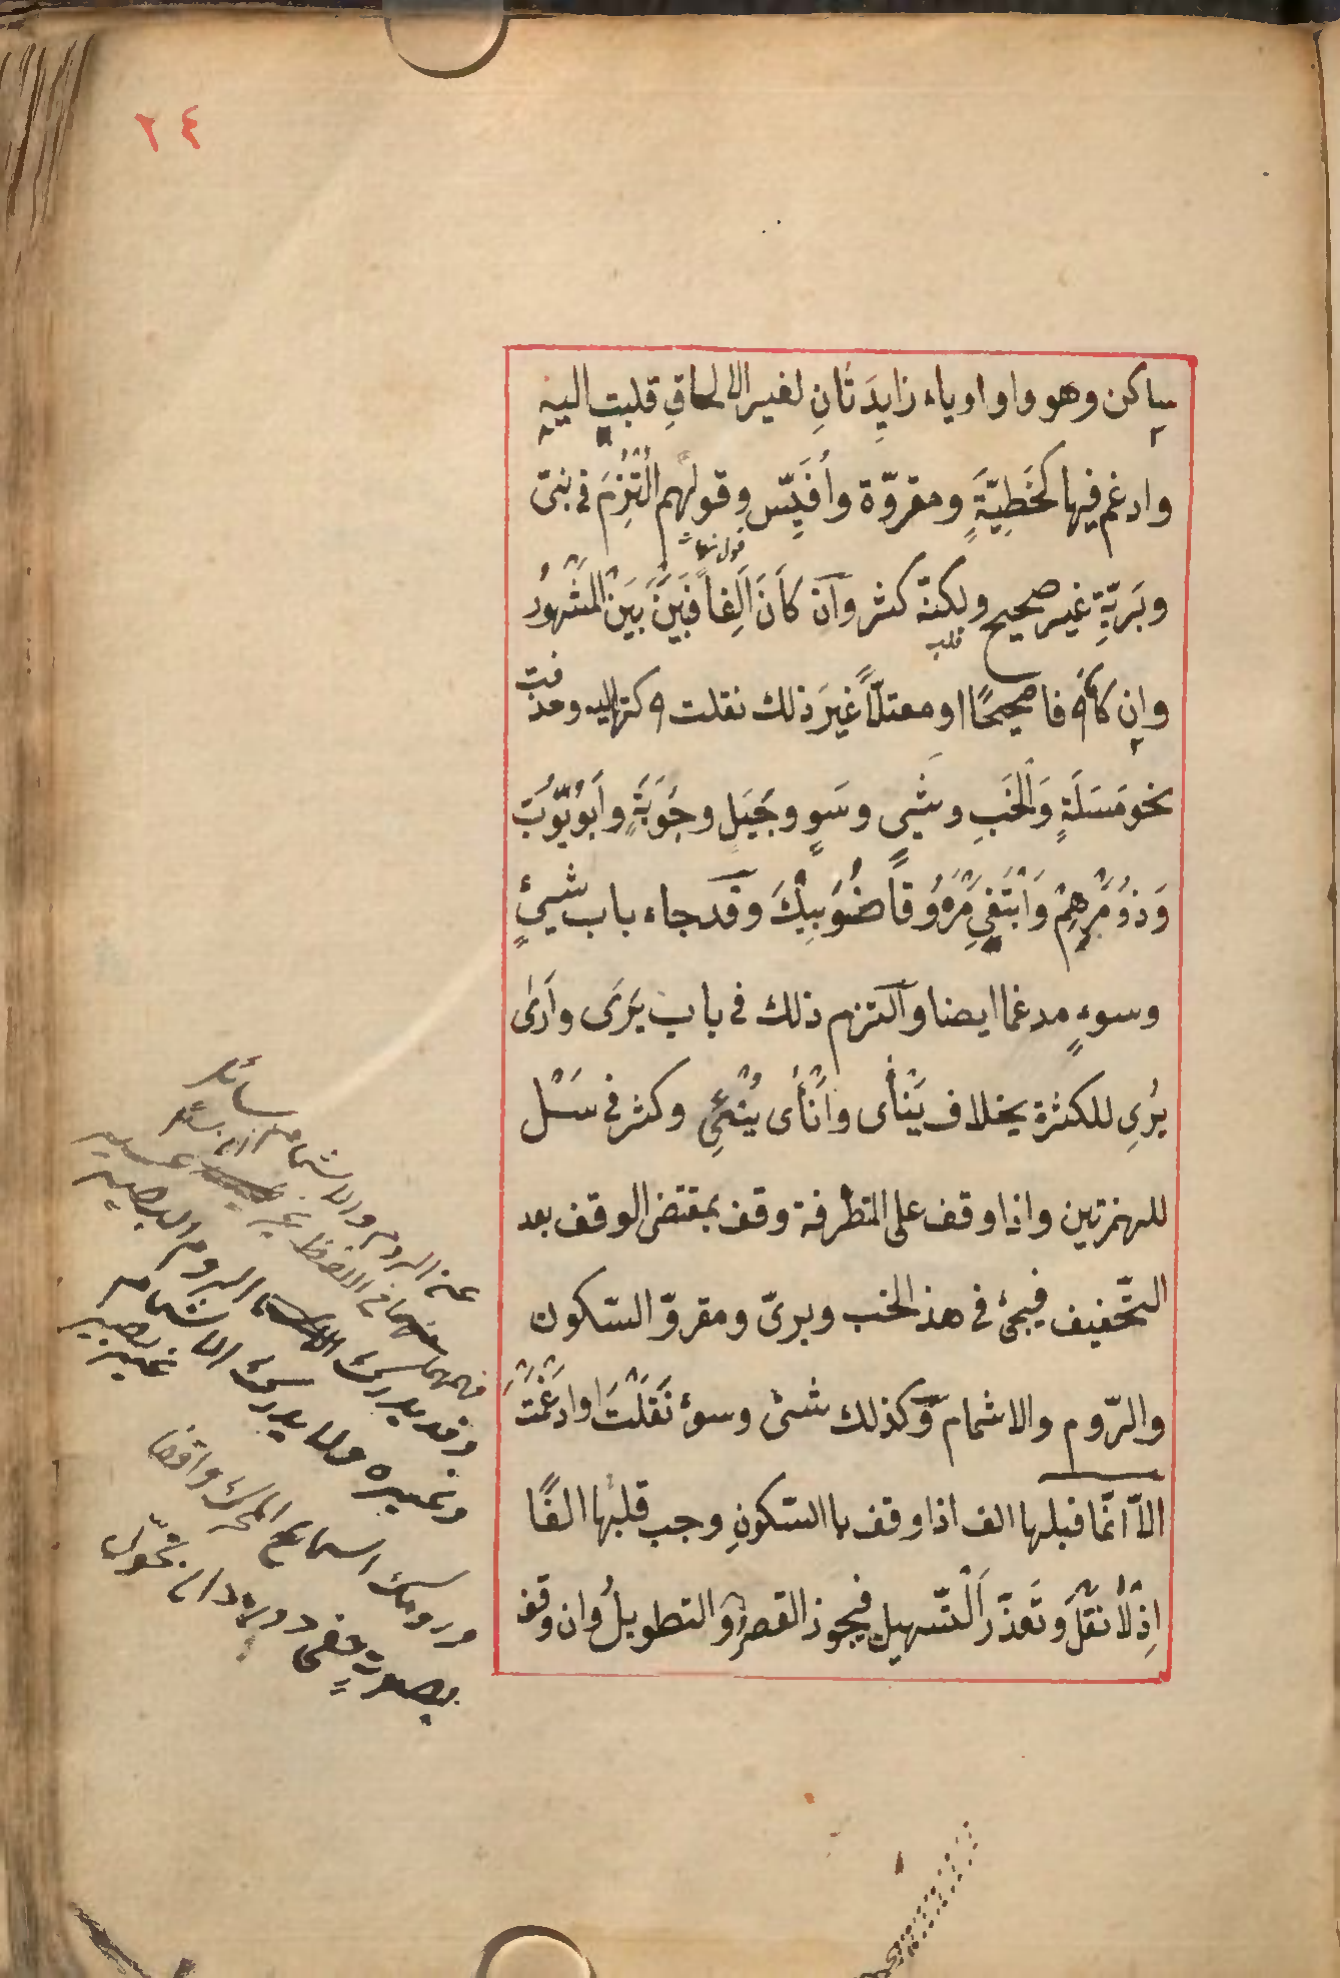 ٢٤
ساكن وهو واو او ياء زايدَتانِ لغير الالحاقِ قلبت اليه
وادغم فيها كخَطِيَّةٍ ومقروّة وأُفَيّس وقولهم التُزِمَ فى نبىّ
وبَريّةٍ غير صحيح ولكنّه كثر وان كانَ اَلِفاً فبَيْنَ بَيْنَ المشهُورُ
وان كان حرفا صحيحًا او معتلّاً غيرَ ذلك نقلت حركتها اليه وحذفت
نحو مَسَلَةٍ وَالخَبِ وشَىٍ وسَوٍ وجَيَلٍ وجَوَبَةٍ واَبُوَيّوُبَ
وَذُوُمْرِهِمْ وَابْتَغِىَ مْرَهُ وقاضُوَبِيْكَ وقد جاء باب شيئٍ
وسوءٍ مدغما ايضا والتزم ذلك فى باب يَرَى وأَرى
يُرِى للكثرة بخلاف يَنْأَى واَنْأَى يُنْئِى وكثر فى سَلْ
للهمزتين واذا وقف على المتطرفة وقف بمقتضى الوقف بعد
التّخفيف فيجئ فى هذا الخب وبرىّ ومقروّ السّكون
والرّوم والاشمام وكذلك شئ وسوء نَقَلْتَ او ادغَمْتَ
الاّ انّ ما قبلها الف اذا وقف بالسّكونِ وجب قلبُها الفًا
اِذْ لاَ نَقْلَ وتَعذّرَ التّسهيل فيجوز القصرُ والتطويلُ وان وقف
عن الروم والاشمام
وقد يدرك الروم البصير
وغيره ولا يدرك الاشمام غير بصير
ورومك اسماع المحرك واقفا
بصوت خفى دونه دان تحوّل